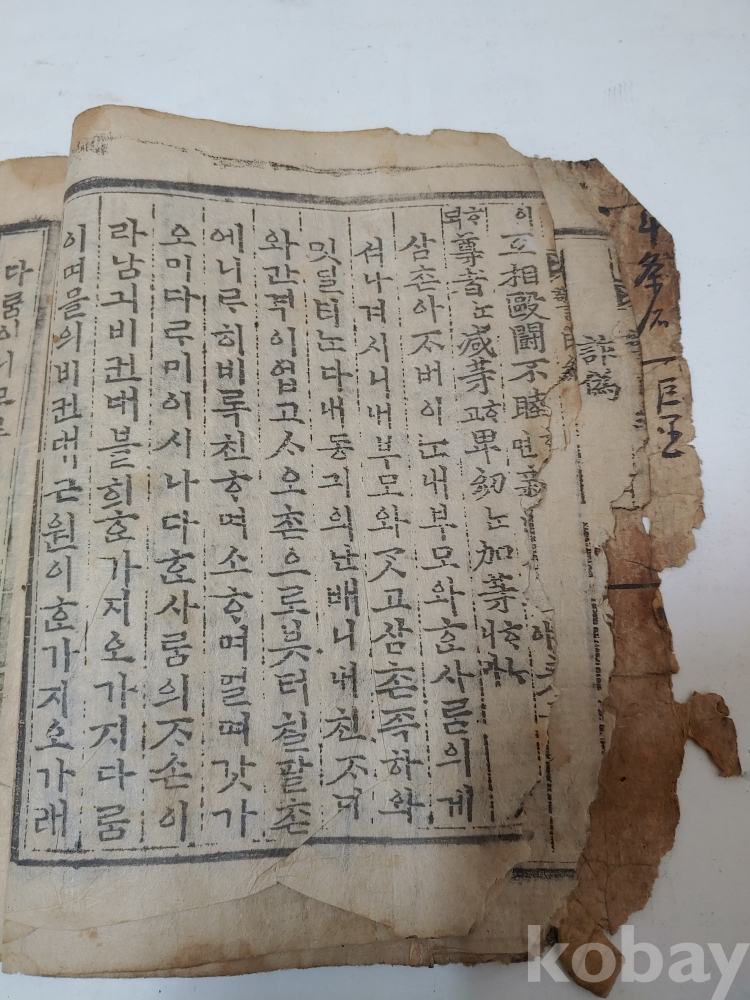 詐僞
이互相毆鬪不睦면
尊者ᄂᆞᆫ減等ᄒᆞ고卑幼ᄂᆞᆫ加等ᄒᆞᄂᆞ니라
삼촌아ᄌᆞ버이ᄂᆞᆫ내부모와ᄒᆞᆫ사ᄅᆞᆷ의게
셔나겨시니내부모와ᄀᆞᆺ고삼촌족하와
밋딜ᄂᆞᆫ다내동긔의난배니내친ᄌᆞ녀
와간격이업고ᄉᆞ오촌으로븟터칠팔촌
에니르히비록친ᄒᆞ며소ᄒᆞ며멀며갓가
오미다ᄅᆞ미이시나다ᄒᆞᆫ사ᄅᆞᆷ의ᄌᆞ손이
라남긔비컨대블희ᄒᆞᆫ가지오가지다ᄅᆞᆷ
이며믈의비컨대근원이ᄒᆞᆫ가지오가래
다ᄅᆞᆷ이니
kobay